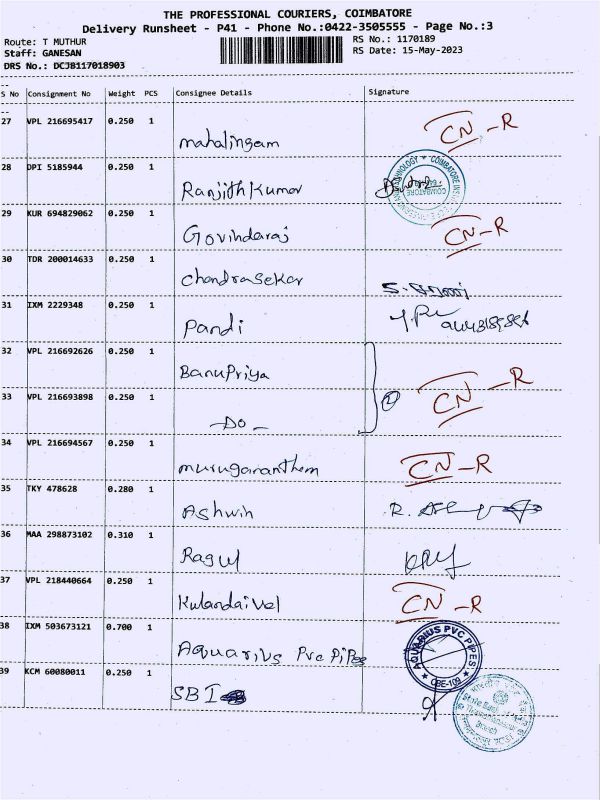 THE PROFESSIONAL COURIERS, COIMBATORE
Delivery Runsheet - P41 - Phone No.:0422-3505555 - Page No.:3
Route: T MUTHUR
RS No.: 1170189
Staff: GANESAN
RS Date: 15-May-2023
DRS No.: DCJ8117018903
S No Consignment No Weight PCS Consignee Details Signature
27 VPL 216695417 0.250 1 mahalingam CN-R
28 DPI 5185944 0.250 1 Ranjithkumar
COIMBATORE
29 KUR 694829062 0.250 1 Govindaraj CN-R
30 TDR 200014633 0.250 1 chandrasekar
31 IXM 2229348 0.250 1 Pandi
32 VPL 216692626 0.250 1 BanuPriya
33 VPL 216693898 0.250 1 -Do- 2 CN-R
34 VPL 216694567 0.250 1 muruganantham CN-R
35 TKY 478628 0.280 1 Ashwin
36 MAA 298873102 0.310 1 Ragul
37 VPL 218440664 0.250 1 Kulandaivel CN-R
38 IXM 503673121 0.700 1 Aquarius Pvc Pipes
AQUARIUS PVC PIPES
CBE-109
39 KCM 60080011 0.250 1 SBI
State Bank of
Branch